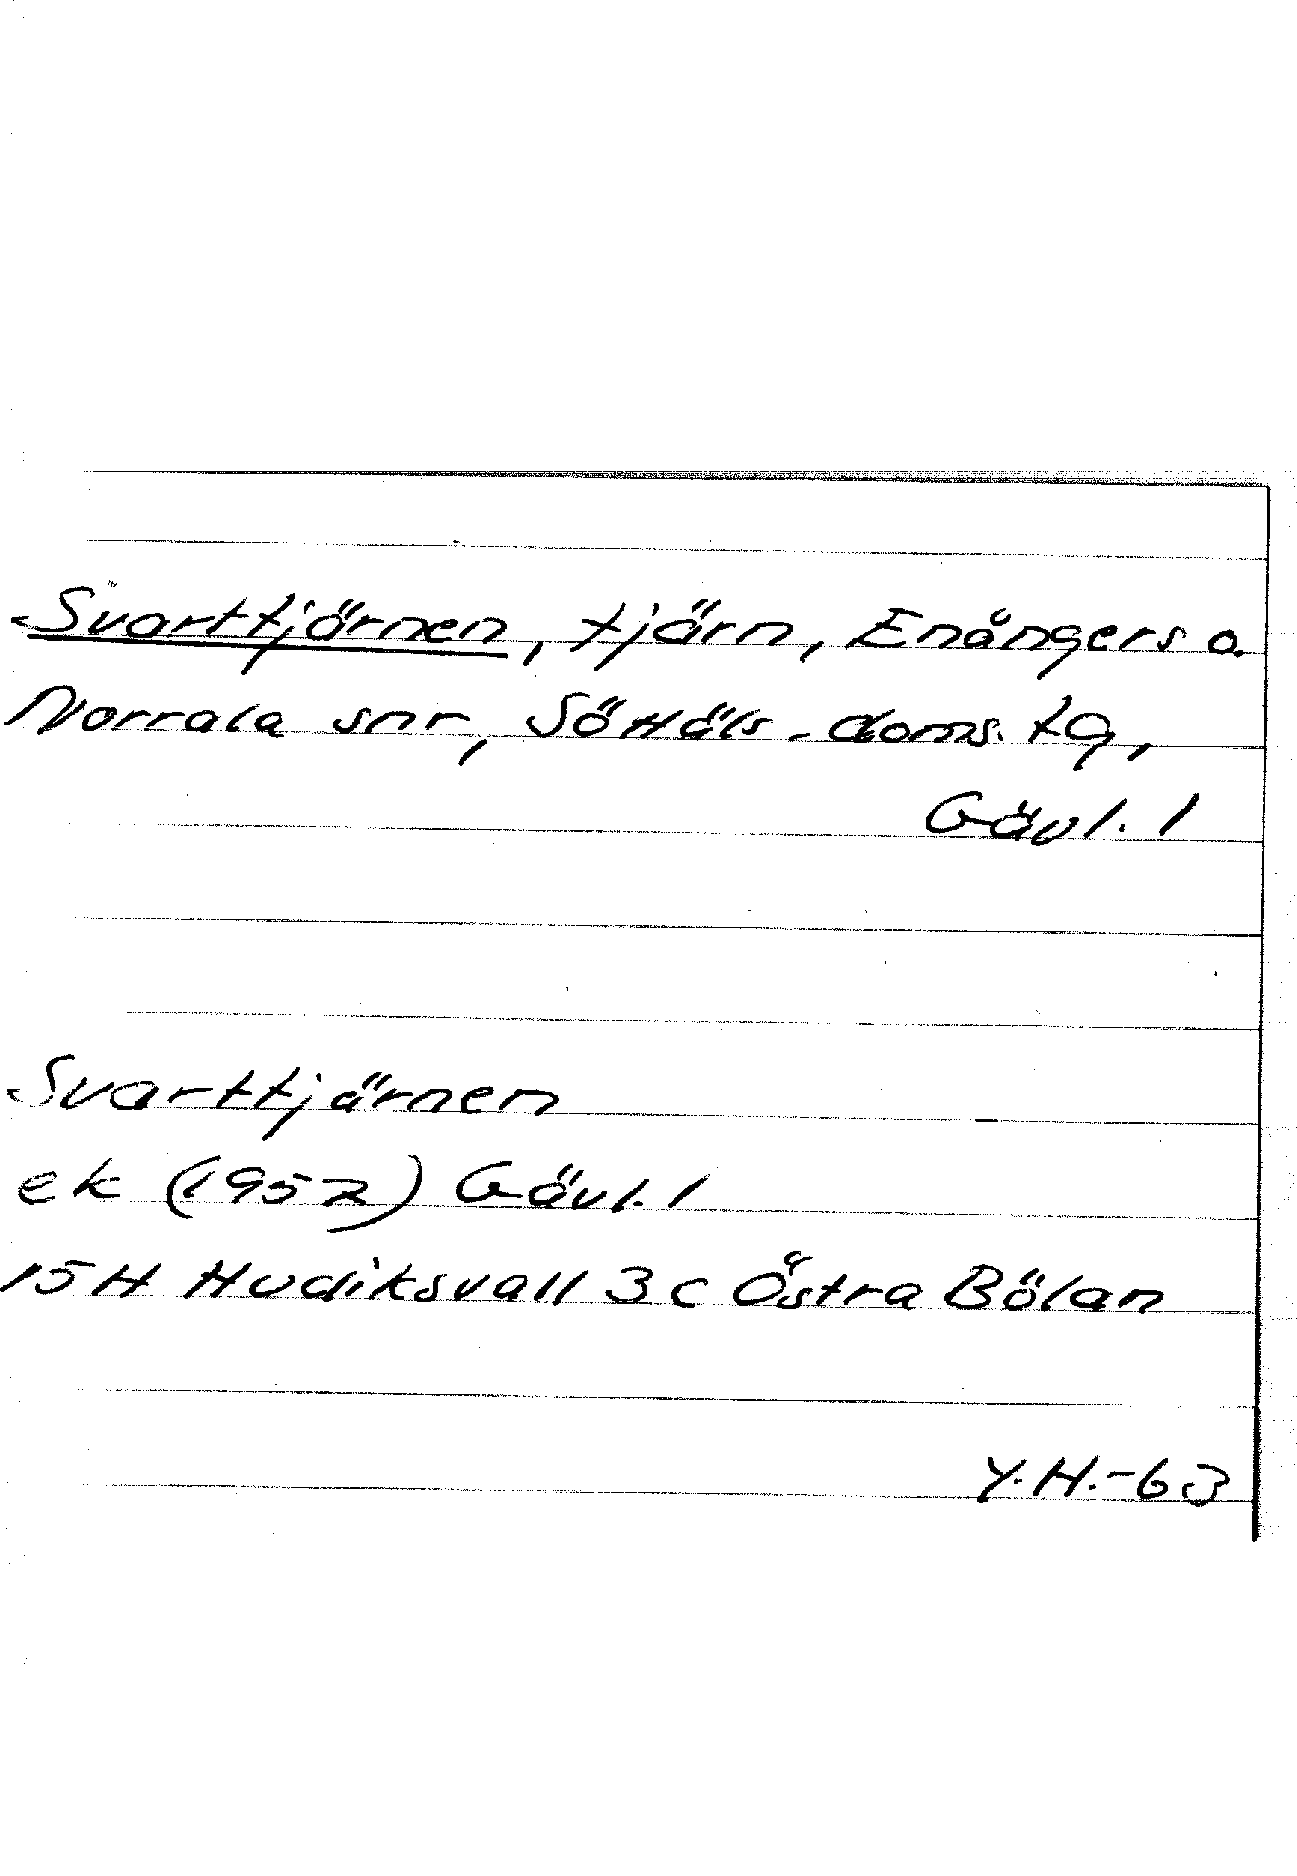 Svarttjärnen, tjärn, Enångers o.
Norrala snr, SöHäls. doms. tg,
Gävl. l
Svarttjärnen
ek (1952) Gävl. l
15H Hudiksvall 3c Östra Bölan
Y.H.-63